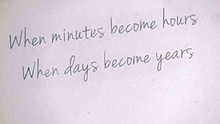 When minutes become hours
When days become years